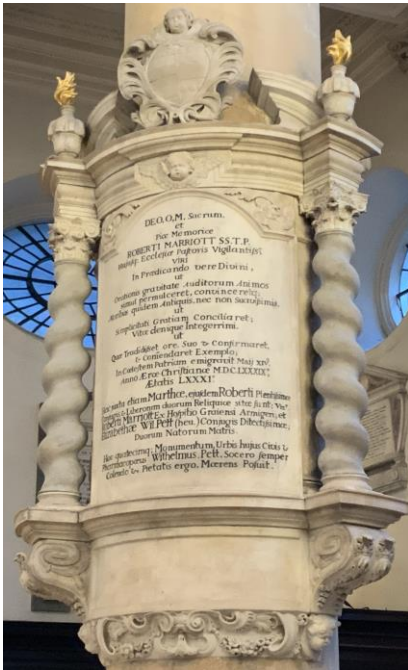 DEO, O, M, Sacrum.
et
Piæ Memoriæ
ROBERTI MARRIOTT SS.T.P.
Hujusce Ecclesiæ Pastoris Vigilantissi
VIRI
In Prædicando vere Divini,
ut
Orationis gravitate Auditorum Animos
simul permulceret, convinceretq;
Moribus quidem Antiquis, nec non
ut
Simplicitate Gratiam Conciliaret;
Vitæ denique Integerrimi.
ut
Quæ Tradidisset ore, Suo & Confirmaret,
& Comendaret Exemplo,
In Cœlestem Patriam emigravit Maij
Anno Æræ Christianæ M.D.C.LXXXIX
Ætatis LXXXI.
Hic juxta etiam Marthæ, ejusdem Roberti
Conjugis & Liberorum duorum Reliquiæ sitæ sunt;
Roberti Marriott Ex Hospitio Graiensi Armigeri, et
Elizabethæ Wil. Pett (heu!) Conjugis Dilectissimæ,
Duorum Natorum Matris.
Hoc qualecunq; Monumentum, Urbis hujus Civis &
Pharmacopæus Wilhelmus Pett, Socero semper
Colendo &c. Pietatis ergo, Mærens Posuit.